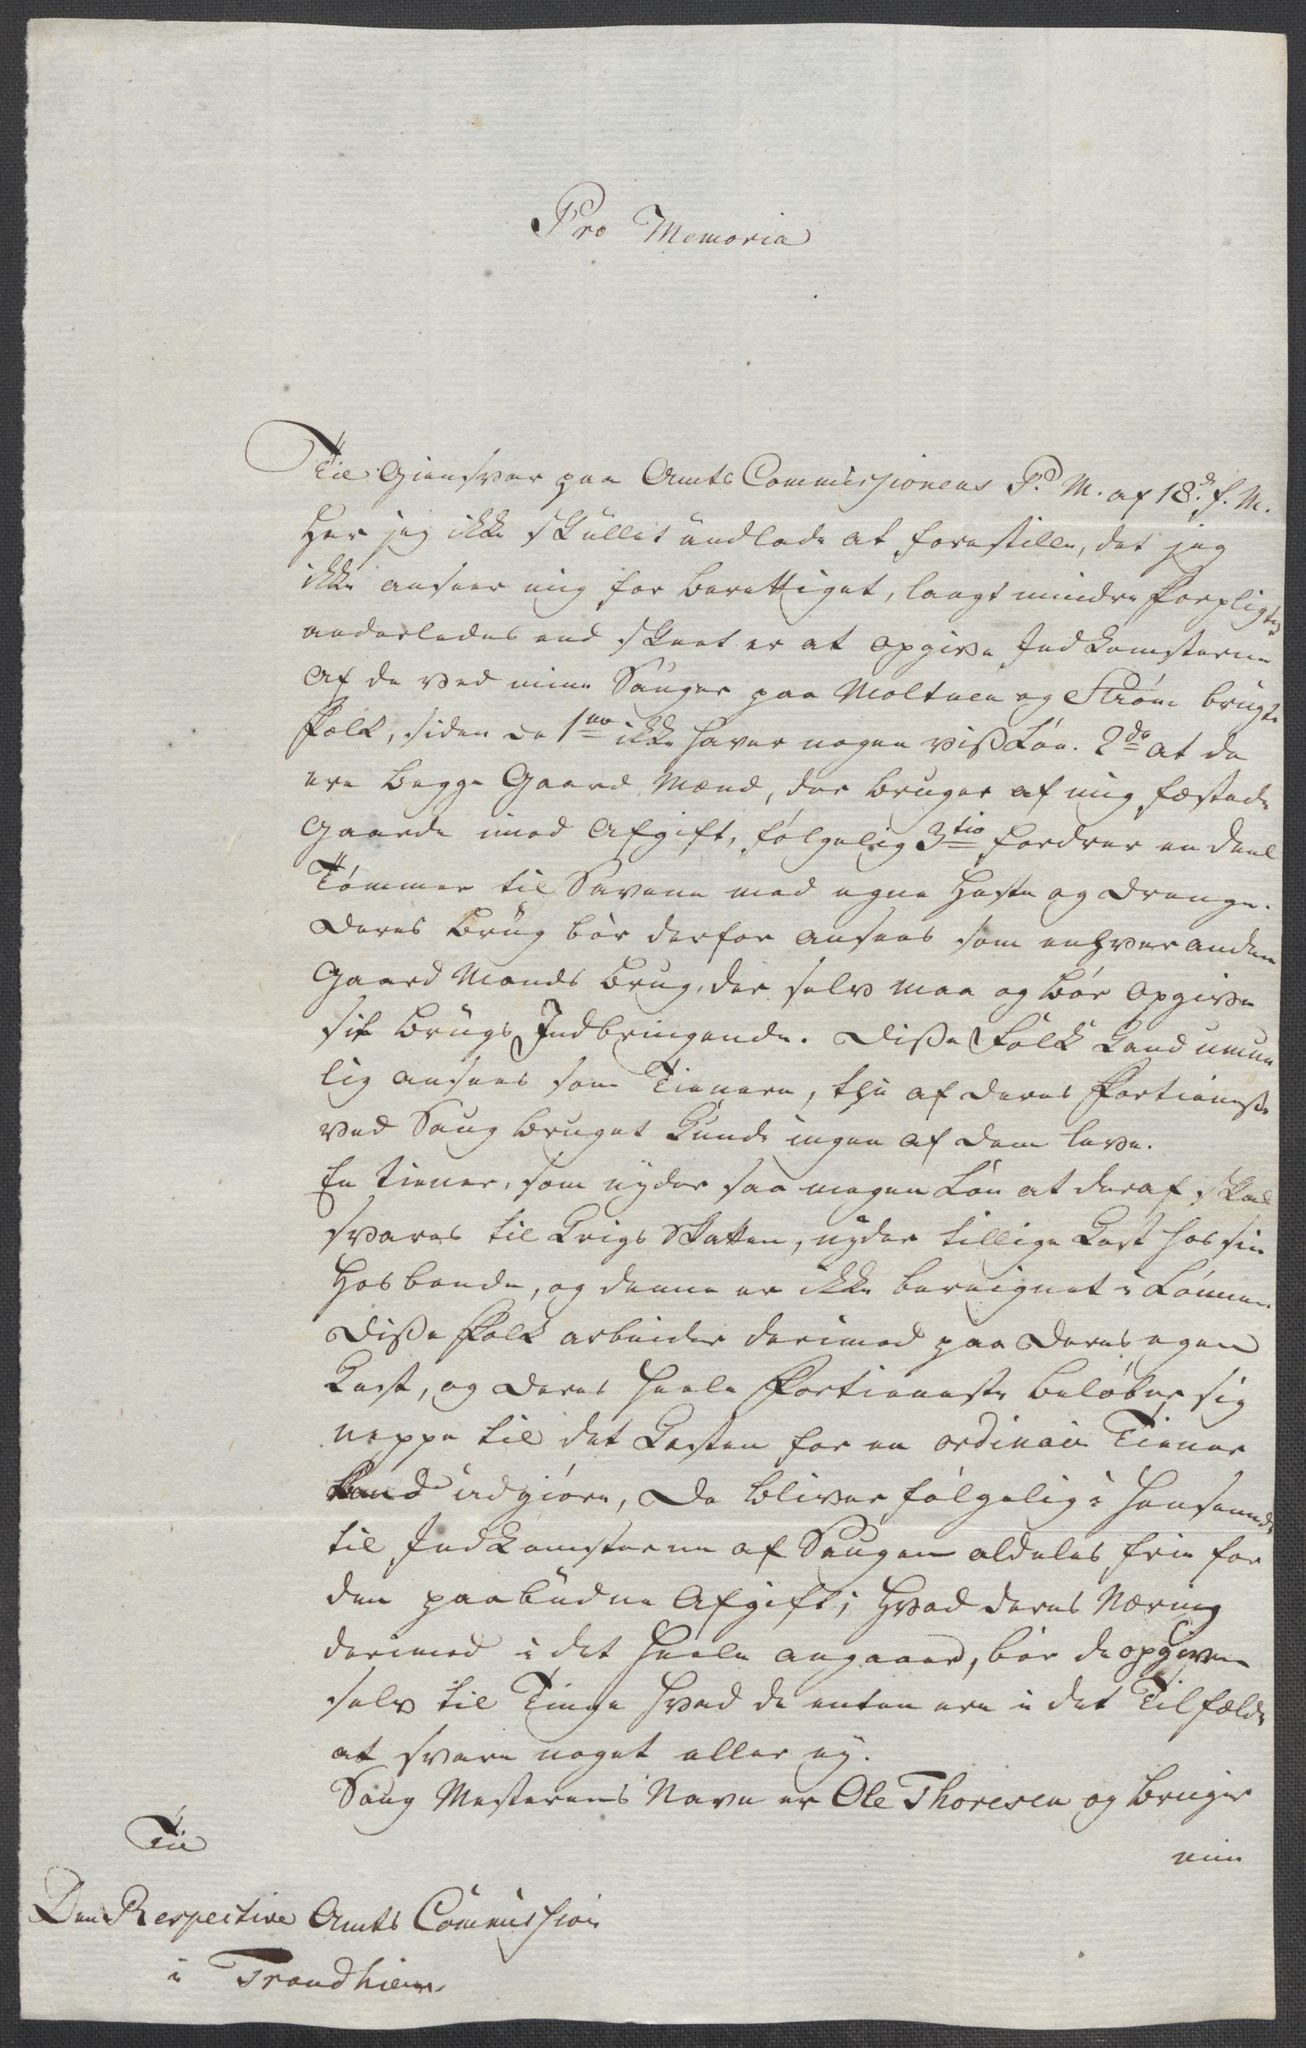 Pro Memoria
Til Giensvar paa Amts Commissionens P. M. af 18.d f. M.
Har jeg ikke skullet undlade at forestille, det jeg
ikke anseer mig for berettiget, langt mindre forpligtet
anderledes end skeet er at opgive Indkomsterne
af de ved mine Sauger paa Moltuen og Strøm brugte
folk, siden de 1mo ikke haver nogen viss Løn. 2do at de
ere begge Gaard Mænd, der bruger af mig fæstede
Gaarde imod Afgift, følgelig 3tio fordrer en deel
Tømmer til Savene med egne Heste og Drenge.
Deres Brug bør derfor ansees som enhver anden
Gaard Mands Brug, der selv maa og bør opgive
sit Brugs Indbringende. Disse Folk kand umue
lig ansees som Tienere, thi af deres Fortieneste
ved Saug Bruget kunde ingen af dem leve.
En Tiener, som nyder saa megen Løn at deraf skal
svares til Krigs Skatten, nyder tillige Kost hos sin
Hosbonde, og denne er ikke beregnet i Lønnen
Disse Folk arbeider derimod paa deres egen
Kost, og deres heele Fortieneste beløber sig
neppe til det Kosten for en ordinair Tiener
kand udgiøre, De bliver følgelig i Henseende
til Indkomsterne af Saugen aldeles frie for
den paabudne Afgift; hvad deres Næring
derimod i det heele angaaer, bør de opgive
selv til Tinge hvad de enten ere i det Tilfælde
at svare noget eller ey.
Saug Mesterens Navn er Ole Thoresen og bruger
min
Til
Den Respective Amts Commission
i Trondhiem.